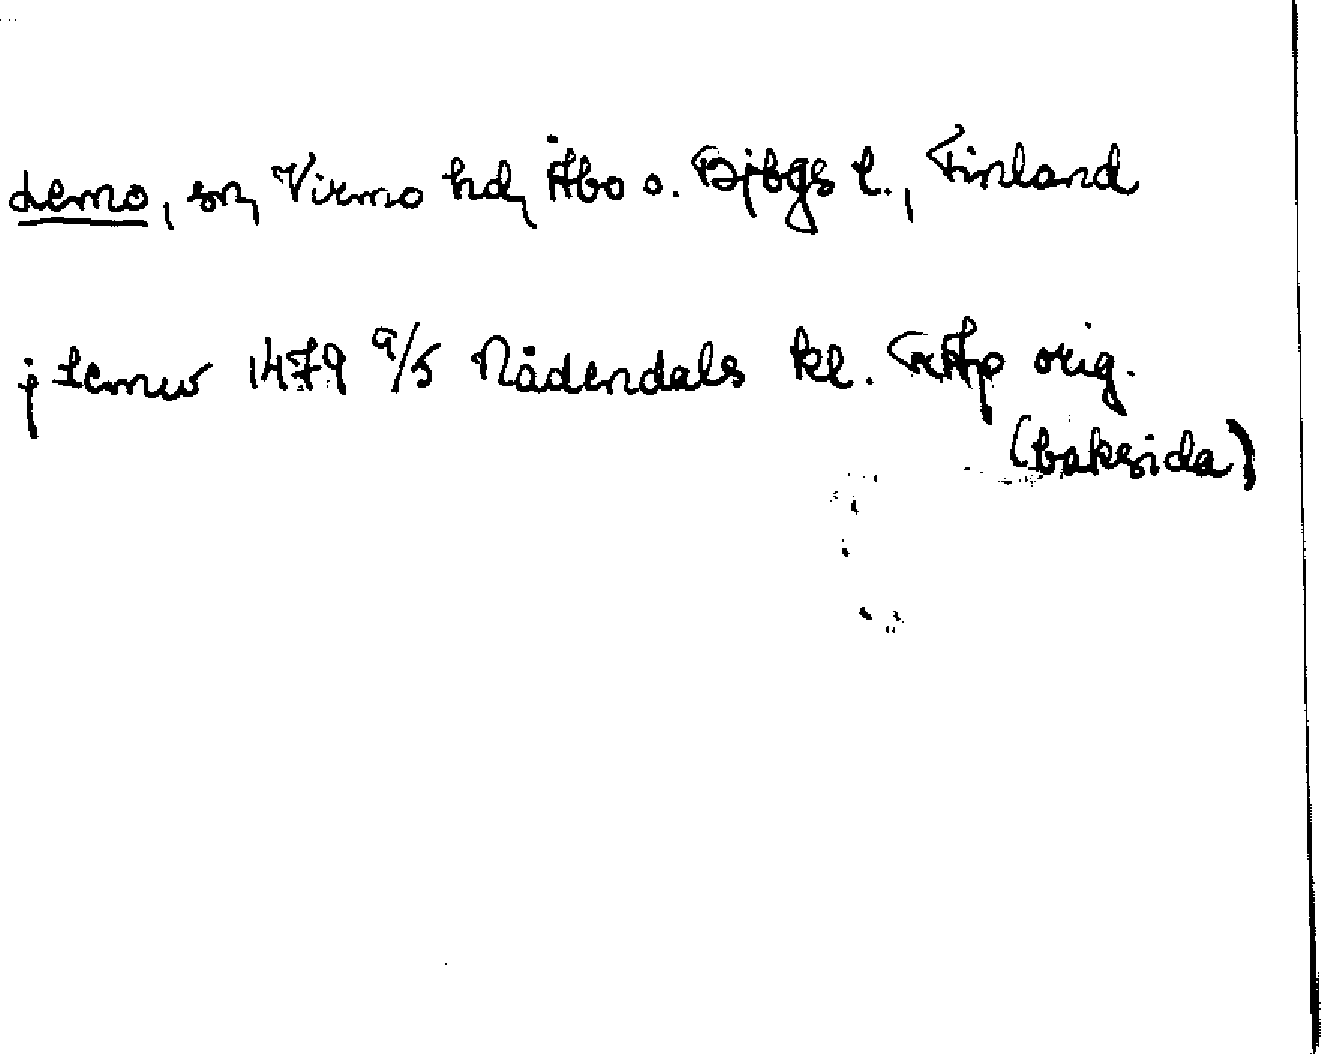 Lemo, sn, Virmo hd, Åbo o. Bjbgs l., Finland
j Lemw 1479 9/5 Nådendals kl. orig.
(baksida)